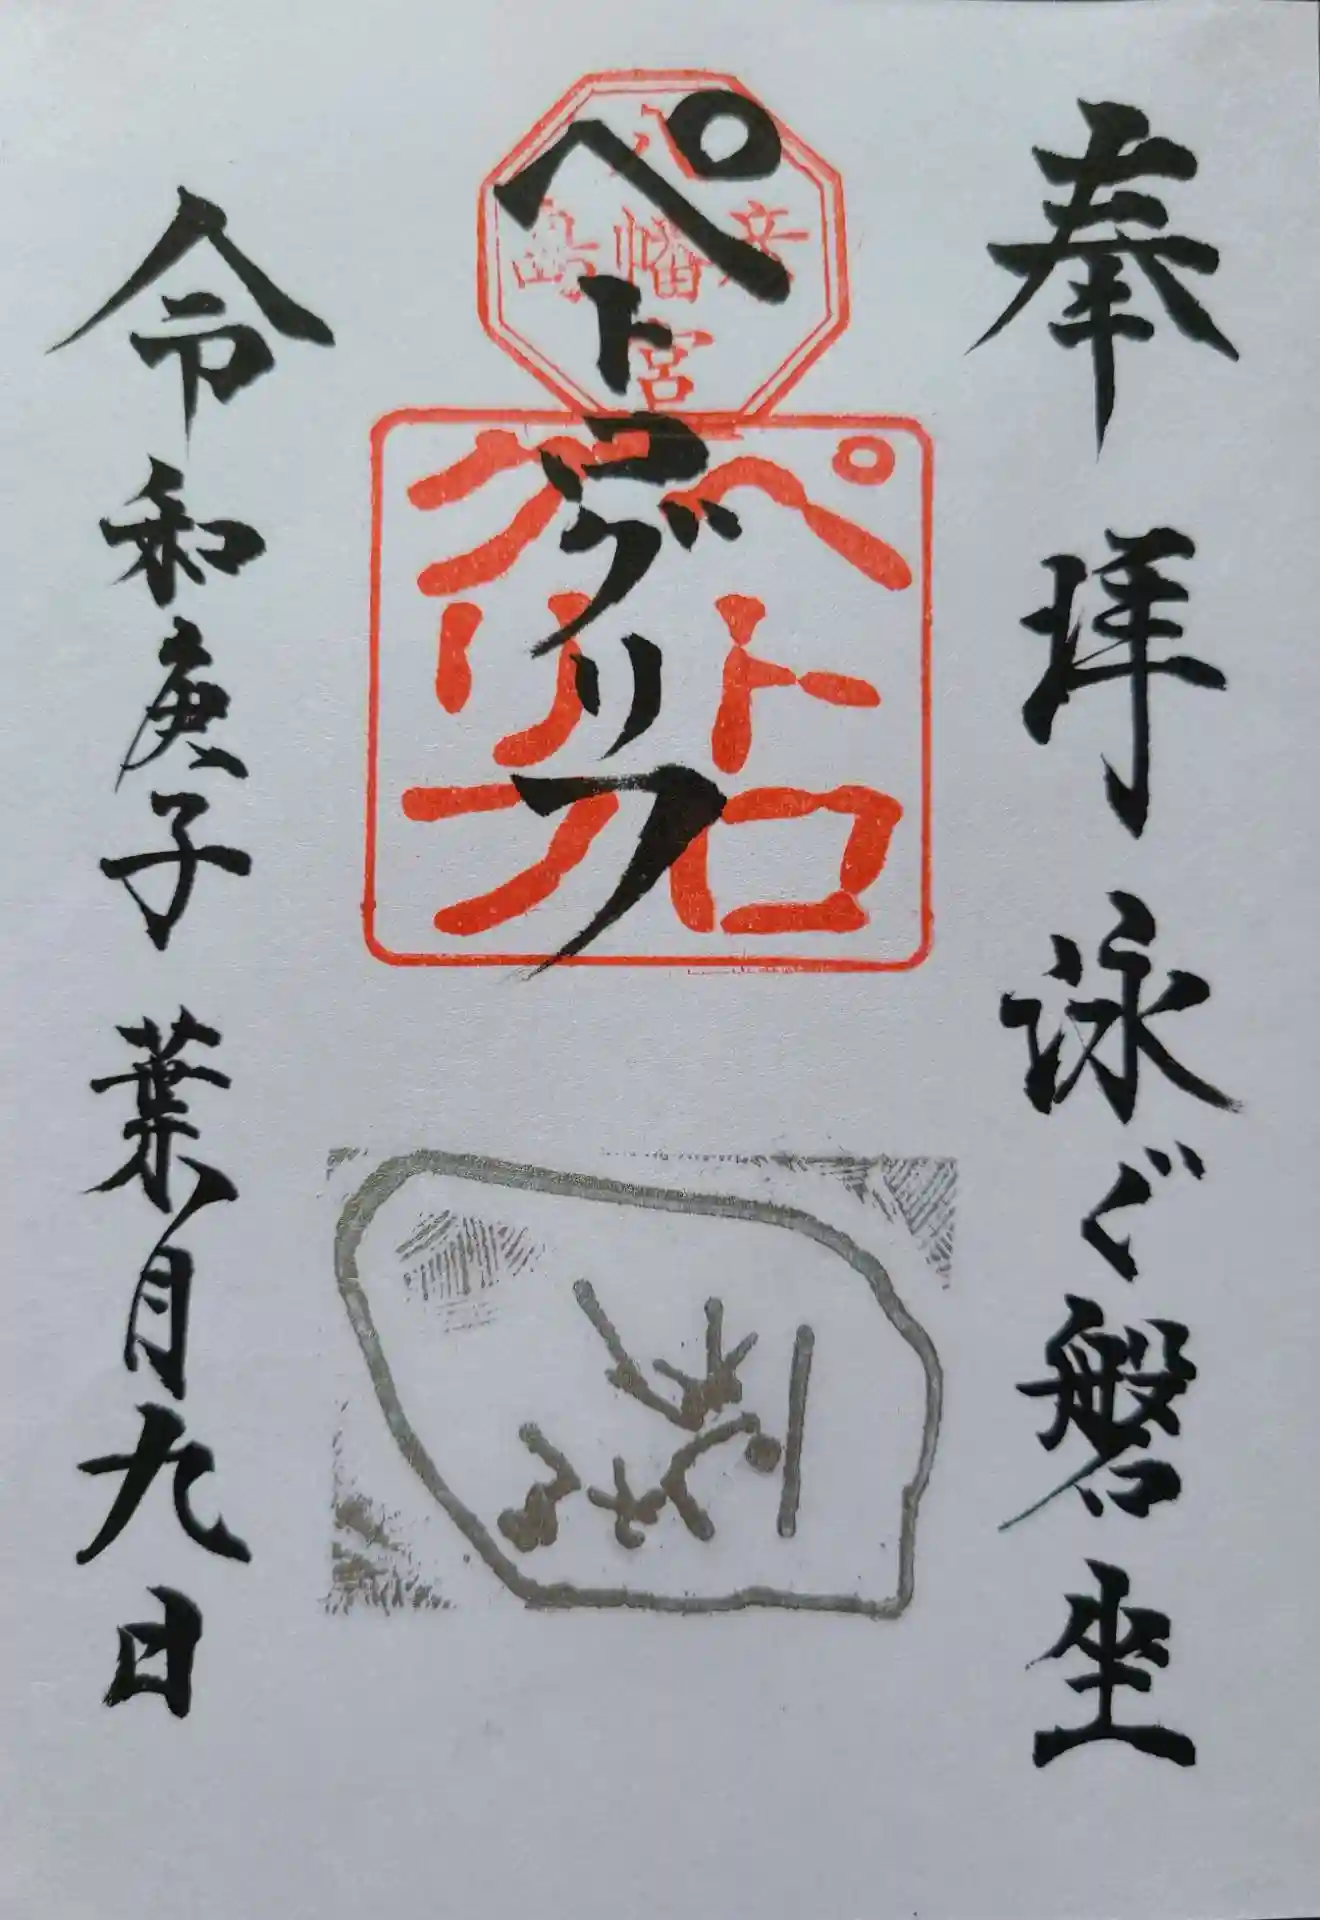 奉拝 泳ぐ磐坐
ペトログリフ
八幡宮
彦島
ペトログリフ
令和庚子 葉月九日